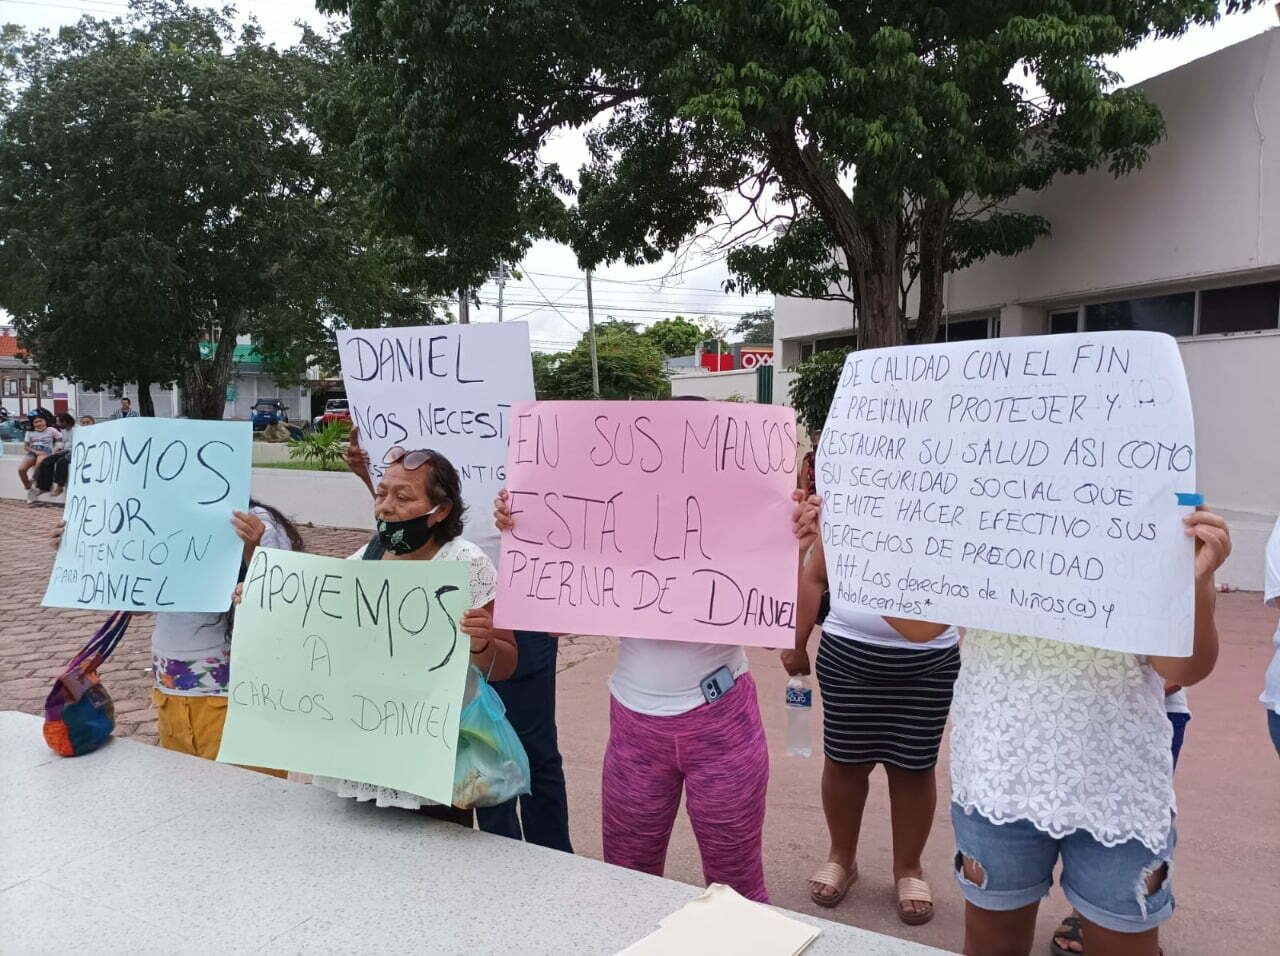 PEDIMOS
MEJOR
ATENCIÓN
PARA DANIEL
APOYEMOS
A
CARLOS DANIEL
DANIEL
NOS NECESIT
EN SUS MANOS
ESTÁ LA
PIERNA DE DANIEL
DE CALIDAD CON EL FIN
E PREVINIR PROTEJER Y
RESTAURAR SU SALUD ASI COMO
SU SEGURIDAD SOCIAL QUE
REMITE HACER EFECTIVO SUS
DERECHOS DE PREORIDAD
Att Los derechos de Niños(a) y
Adolecentes*
OXXO